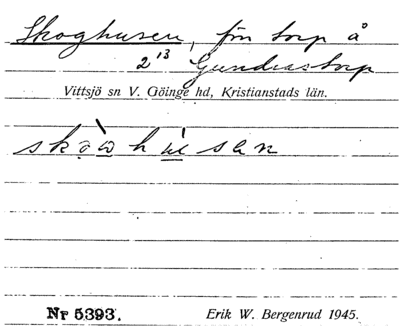 Skoghusen, frn torp å
2 13 Gundrastorp
Vittsjö sn V. Göinge hd, Kristianstads län.
Nr 5393. Erik W. Bergenrud 1945.